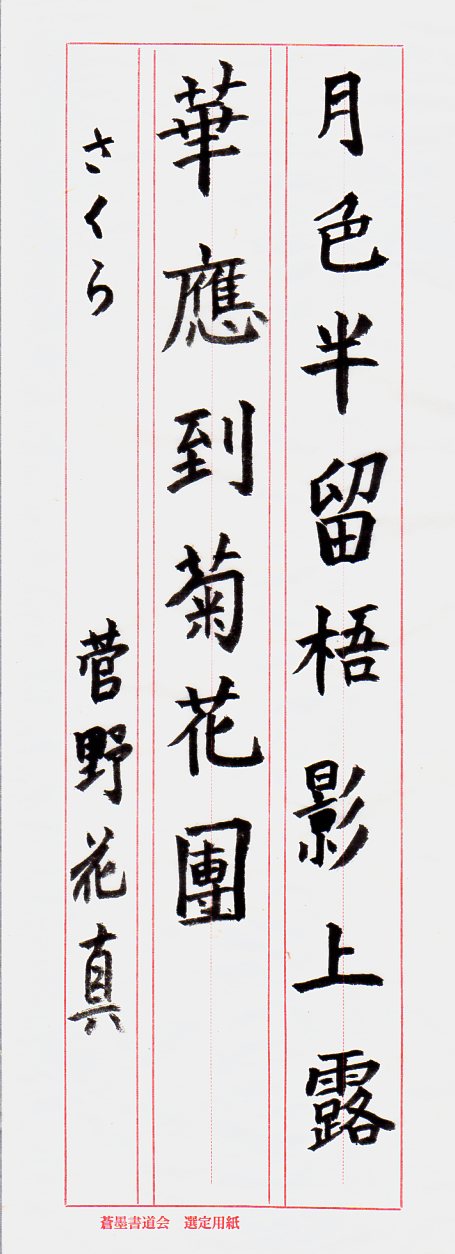 月色半留梧影上露
華應到菊花團
さくら 菅野花真
蒼墨書道会 選定用紙